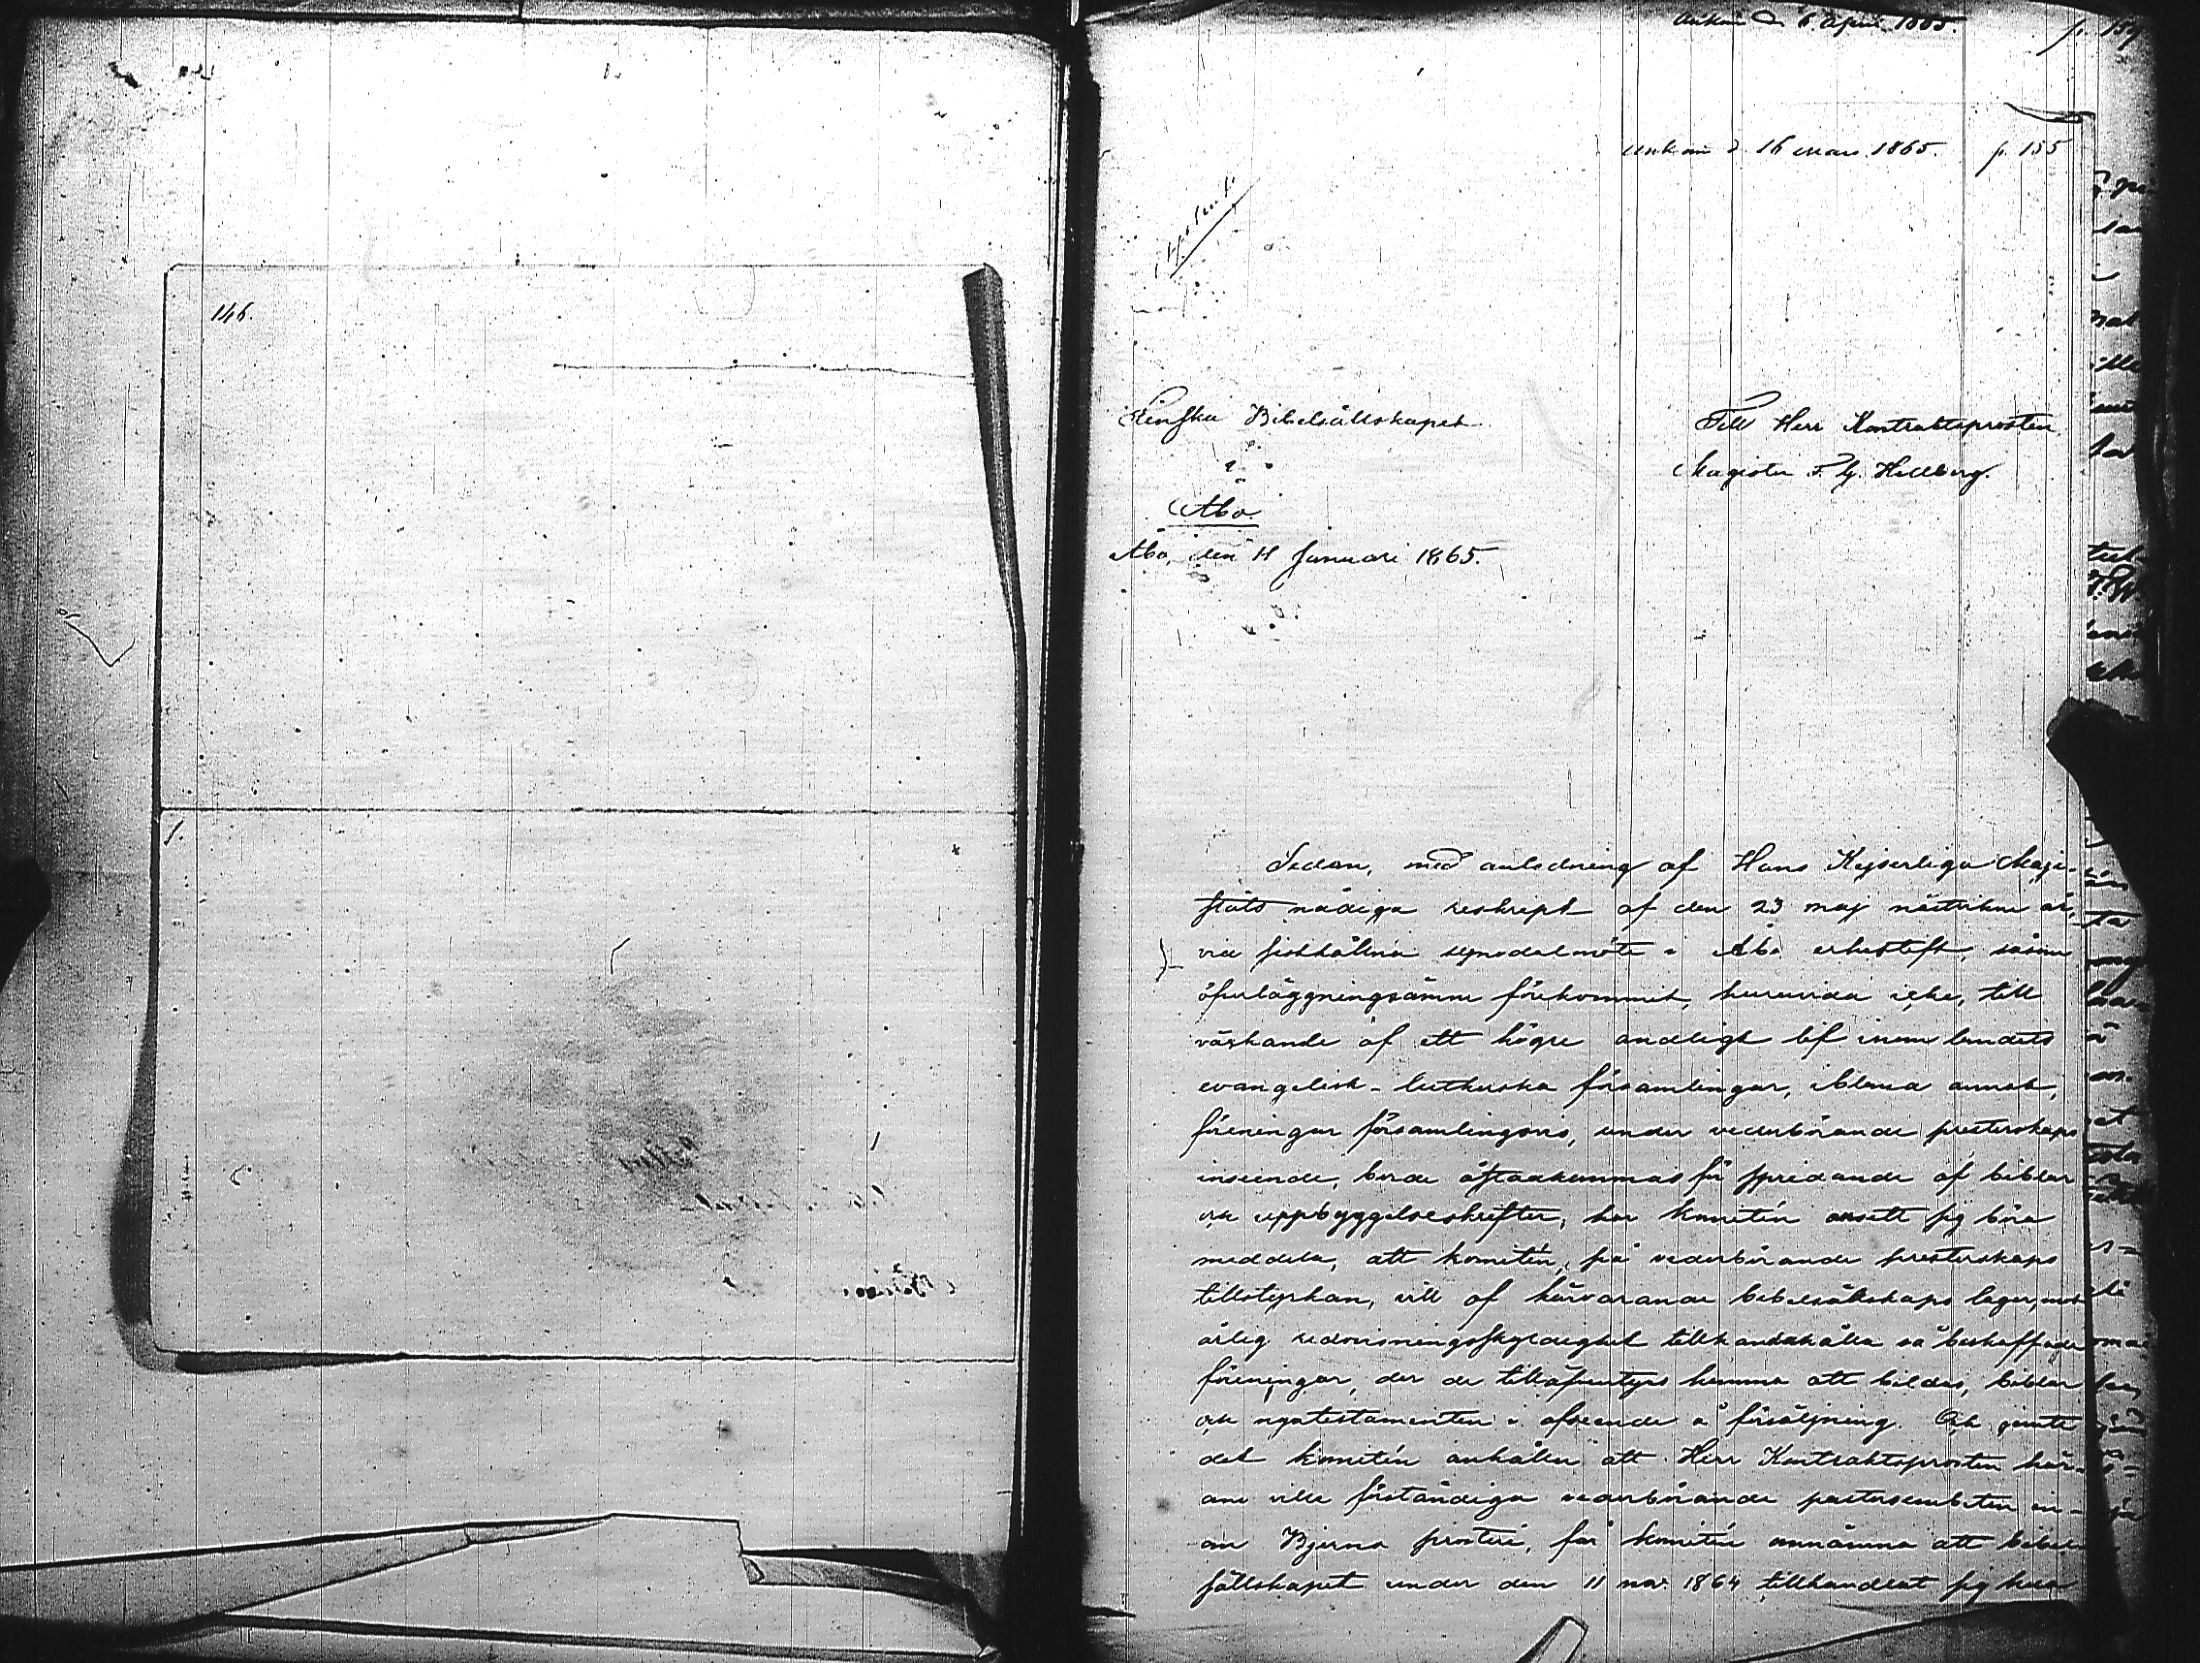 146.
Ank. d. 6 April 1865.
p. 159
Ank. d. 16 Mars 1865. p. 155
Finska Bibelsällskapet
i
Åbo.
Åbo, den 11 Januari 1865.
Till Herr Kontraktsprosten
Magister F. G. Hellberg.
Sedan, med anledning af Hans Kejserliga Maje-
stäts nådiga reskript af den 23 maj nästvikne år,
vid sisthållna synodalmöte i Åbo erkestift, såsom
öfverläggningsämne förekommit, huruvida icke, till
väckande af ett högre andeligt lif inom landets
evangelisk-lutherska församlingar, ibland annat,
föreningar församlingsvis, under vederbörande presterskaps
inseende, borde åstadkommas för spridande af biblar
och uppbyggelseskrifter, har komitén ansett sig böra
meddela, att komitén, på vederbörande presterskaps
tillstyrkan, vill af härvarande bibelsällskaps lager, mot
årlig redovisningsskyldighet tillhandahålla så beskaffade
föreningar, der de tilläfventyrs komma att bildas, biblar
och nyatestamenten i afseende å försäljning. Och jemte
det komitén anhåller att Herr Kontraktsprosten här-
om ville förständiga vederbörande pastorsembeten in-
om Bjerno prosteri, får komitén omnämna att bibel-
sällskapet under den 11 nov. 1864 tillhandlat sig hela